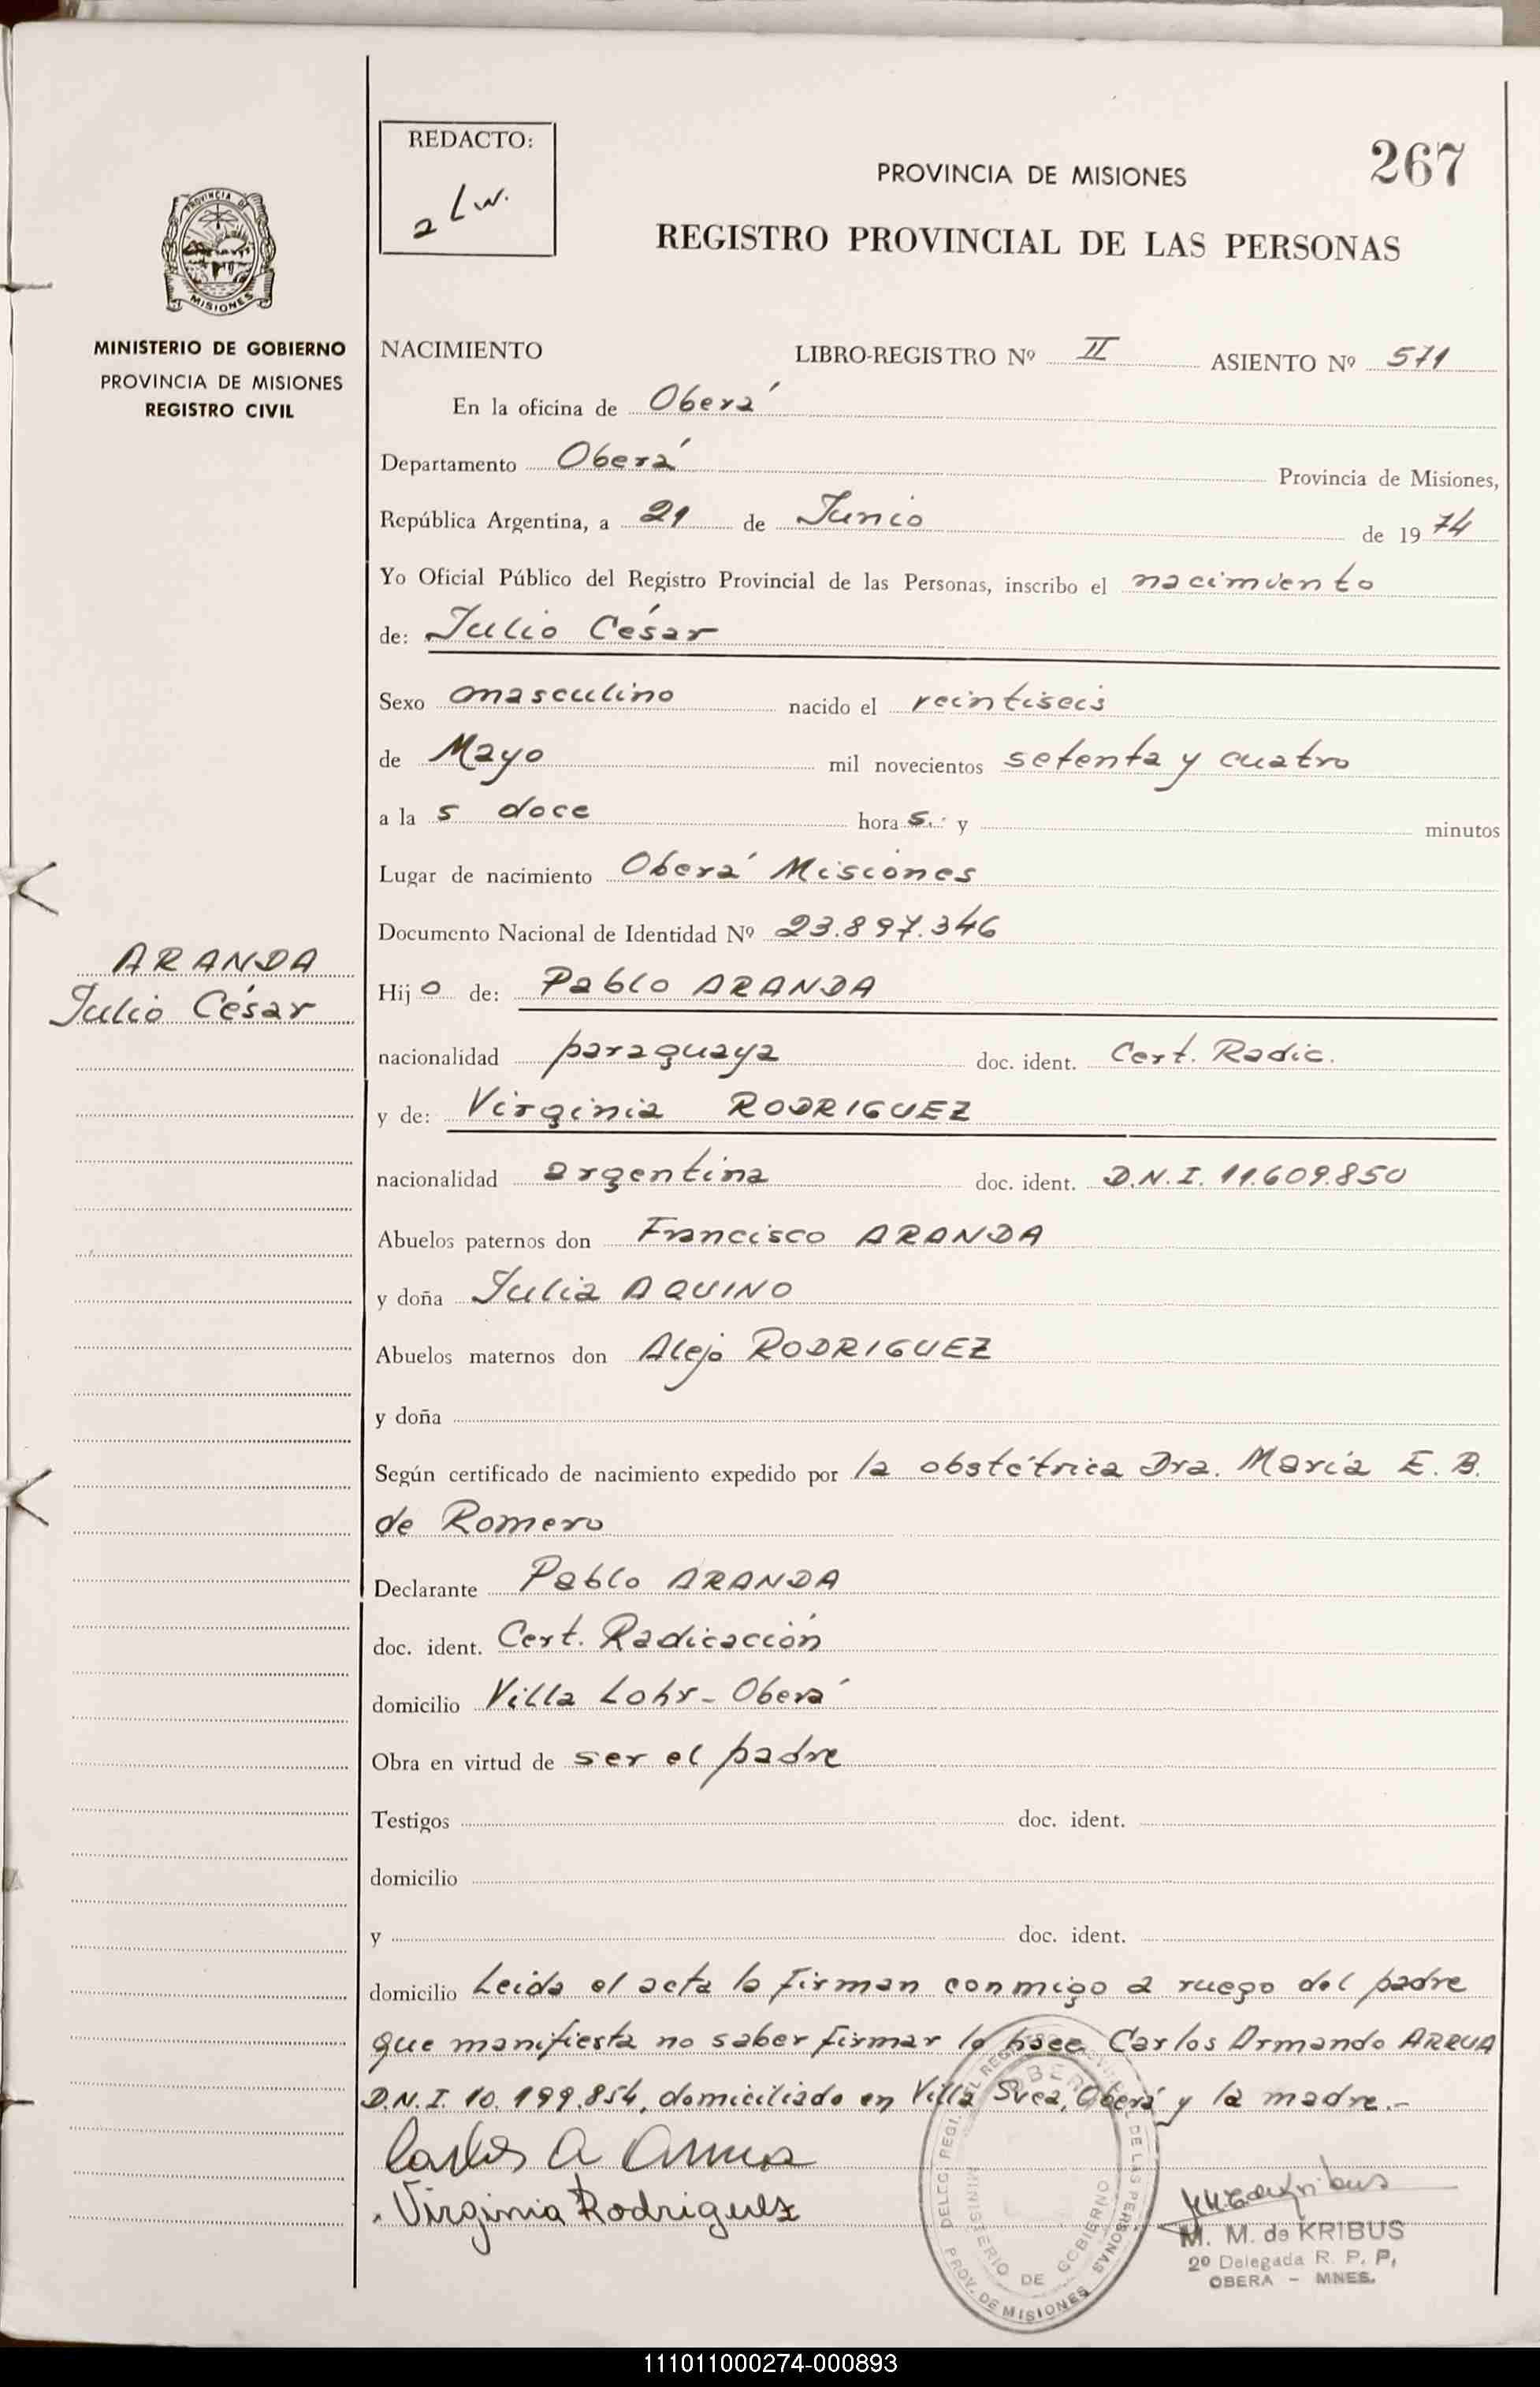 REDACTO:
PROVINCIA DE MISIONES
267
REGISTRO PROVINCIAL DE LAS PERSONAS
PROVINCIA DE
MISIONES
MINISTERIO DE GOBIERNO
PROVINCIA DE MISIONES
REGISTRO CIVIL
NACIMIENTO LIBRO-REGISTRO Nº II ASIENTO Nº 571
En la oficina de Oberá
Departamento Oberá Provincia de Misiones,
República Argentina, a 21 de Junio de 1974
Yo Oficial Público del Registro Provincial de las Personas, inscribo el nacimiento
de: Julio César
Sexo masculino nacido el veintiseis
de Mayo mil novecientos setenta y cuatro
a la s doce hora s. y minutos
Lugar de nacimiento Oberá Misiones
Documento Nacional de Identidad Nº 23.897.346
ARANDA
Julio César
Hijo de: Pablo ARANDA
nacionalidad paraguaya doc. ident. Cert. Radic.
y de: Virginia RODRIGUEZ
nacionalidad argentina doc. ident. D.N.I. 11.609.850
Abuelos paternos don Francisco ARANDA
y doña Julia AQUINO
Abuelos maternos don Alejo RODRIGUEZ
y doña
Según certificado de nacimiento expedido por la obstétrica Dra. María E. B.
de Romero
Declarante Pablo ARANDA
doc. ident. Cert. Radicación
domicilio Villa Lohr - Oberá
Obra en virtud de ser el padre
Testigos doc. ident.
domicilio
y doc. ident.
domicilio Leida el acta la firman conmigo a ruego del padre
que manifiesta no saber firmar lo hace Carlos Armando ARRUA
D.N.I. 10.199.854, domiciliado en Villa Svea, Oberá y la madre.-
Carlos A Arrua
Virginia Rodriguez
MINISTERIO DE GOBIERNO
PROV. DE MISIONES
M. M. de KRIBUS
2º Delegada R. P. P.
OBERA - MNES.
111011000274-000893